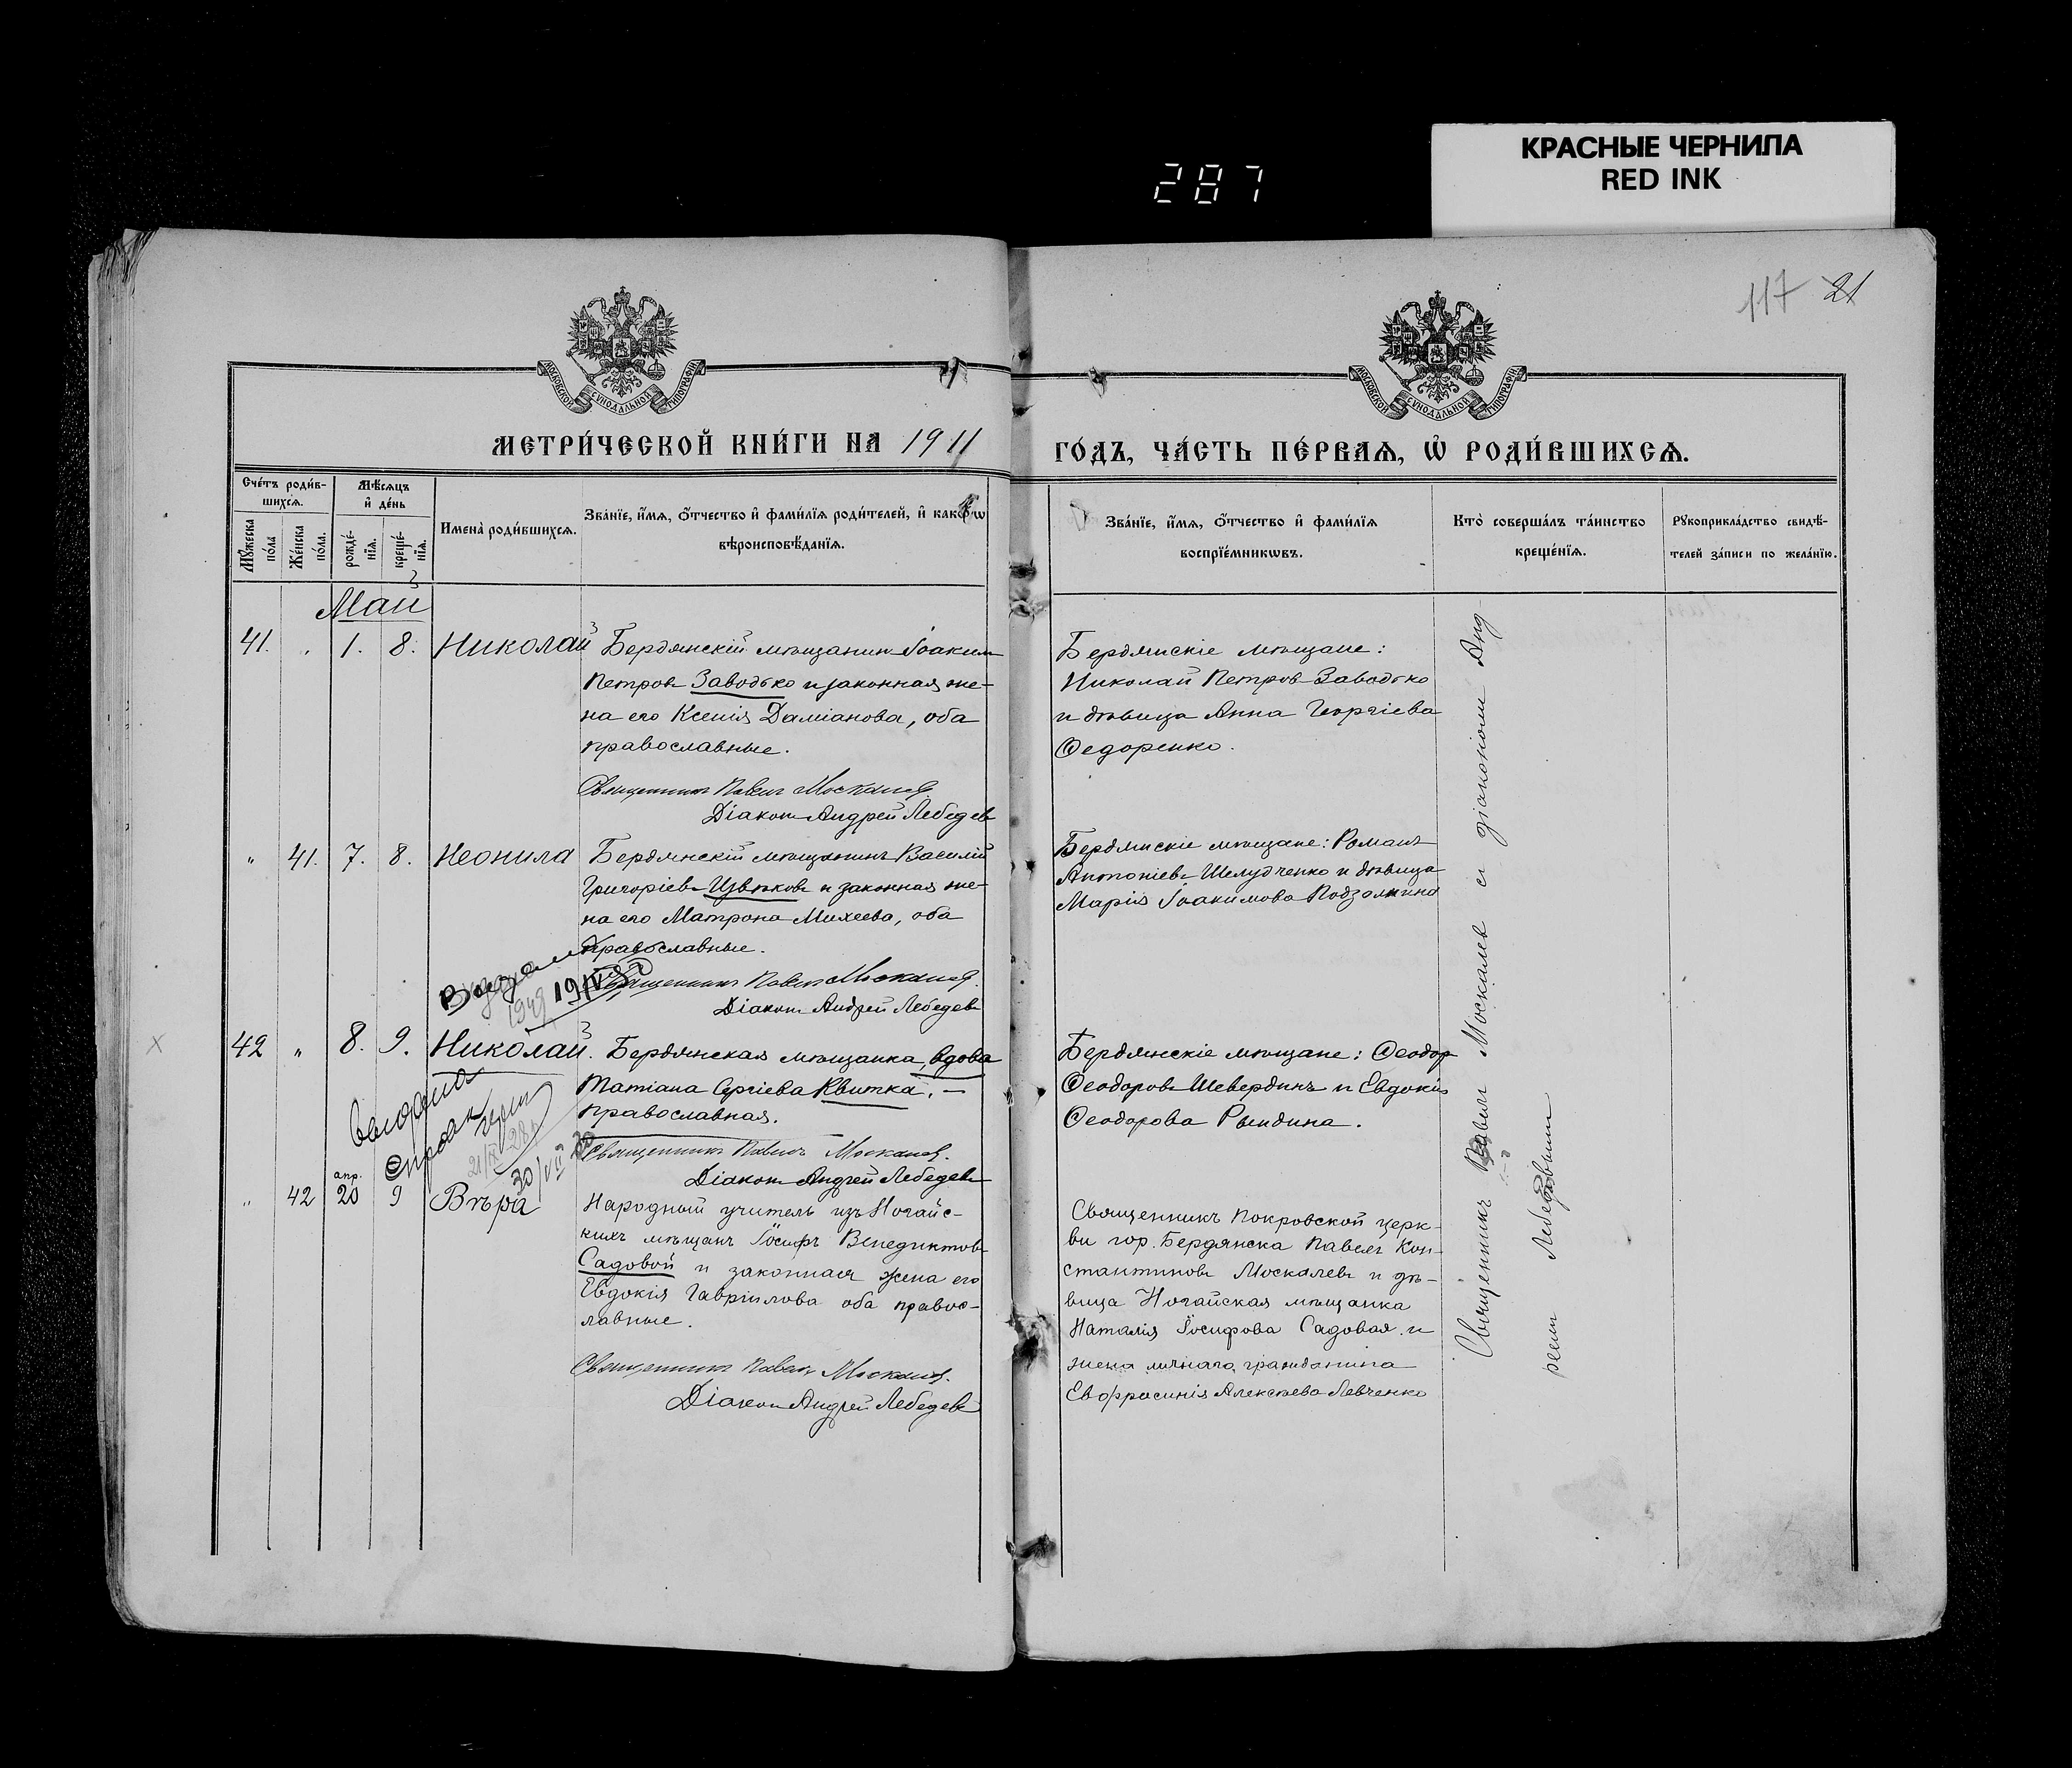 КРАСНЫЕ ЧЕРНИЛА
RED INK
287
117 21
МОСКОВСКОЙ СУНОДАЛЬНОЙ ТИПОГРАФІИ
МОСКОВСКОЙ СУНОДАЛЬНОЙ ТИПОГРАФІИ
МЕТРИ́ЧЕСКОЙ КНИ́ГИ НА 1911
ГО́ДЪ, ЧА́СТЬ ПЕ́РВАѦ, Ѡ҆ РОДИ́ВШИХСѦ.
Сче́тъ роди́в-
шихсѧ.
Мꙋ́жеска по́ла
Же́нска по́ла.
Мѣ́сѧцъ
и҆ де́нь
рожде́-
нїѧ.
креще́-
нїѧ.
Имена̀ роди́вшихсѧ.
Зва́нїе, и҆́мѧ, ѻ҆́тчество и҆ фами́лїѧ роди́телей, и҆ како́гѡ
вѣроисповѣ́данїѧ.
Зва́нїе, и҆́мѧ, ѻ҆́тчество и҆ фами́лїѧ
воспрїе́мникѡвъ.
Кто̀ соверша́лъ та́инство
креще́нїѧ.
Рꙋкоприкла́дство свидѣ́-
телей за́писи по жела́нїю.
Май
41. " 1. 8. Николай
Бердянскій мѣщанинъ Іоакимъ
Петровъ Заводько и законная же-
на его Ксенія Даміанова, оба
православные.
Священникъ Павелъ Москалевъ.
Діаконъ Андрей Лебедевъ
Бердянскіе мѣщане:
Николай Петровъ Заводько
и дѣвица Анна Георгіева
Ѳедоренко.
" 41. 7. 8. Неонила
Бердянскій мѣщанинъ Василій
Григоріевъ Цвѣтковъ и законная же-
на его Матрона Михеева, оба
православные.
Священникъ Павелъ Москалевъ.
Діаконъ Андрей Лебедевъ
Бердянскіе мѣщане: Романъ
Антоніевъ Шелудченко и дѣвица
Марія Іоакимова
1949
42 " 8. 9. Николай.
Бердянская мѣщанка, вдова
Татіана Сергіева Квитка. —
православная.
Священникъ Павелъ Москалевъ.
Діаконъ Андрей Лебедевъ
Бердянскіе мѣщане: Ѳеодоръ
Ѳеодоровъ Шевердинъ и Евдокія
Ѳеодорова Рындина.
30/VII
апр.
" 42 20 9 Вѣра
Народный учитель изъ Ногайс-
кихъ мѣщанъ Іосифъ Венедиктовъ
Садовой и законная жена его
Евдокія Гавріилова оба правос-
лавные.
Священникъ Павелъ Москалевъ.
Діаконъ Андрей Лебедевъ
Священникъ Покровской церк-
ви гор. Бердянска Павелъ Кон-
стантиновъ Москалевъ и дѣ-
вица Ногайская мѣщанка
Наталія Іосифова Садовая и
жена личнаго гражданина
Евфросинія Алексѣева Левченко
Священникъ Павелъ Москалевъ съ діакономъ Анд-
реем Лебедевымъ